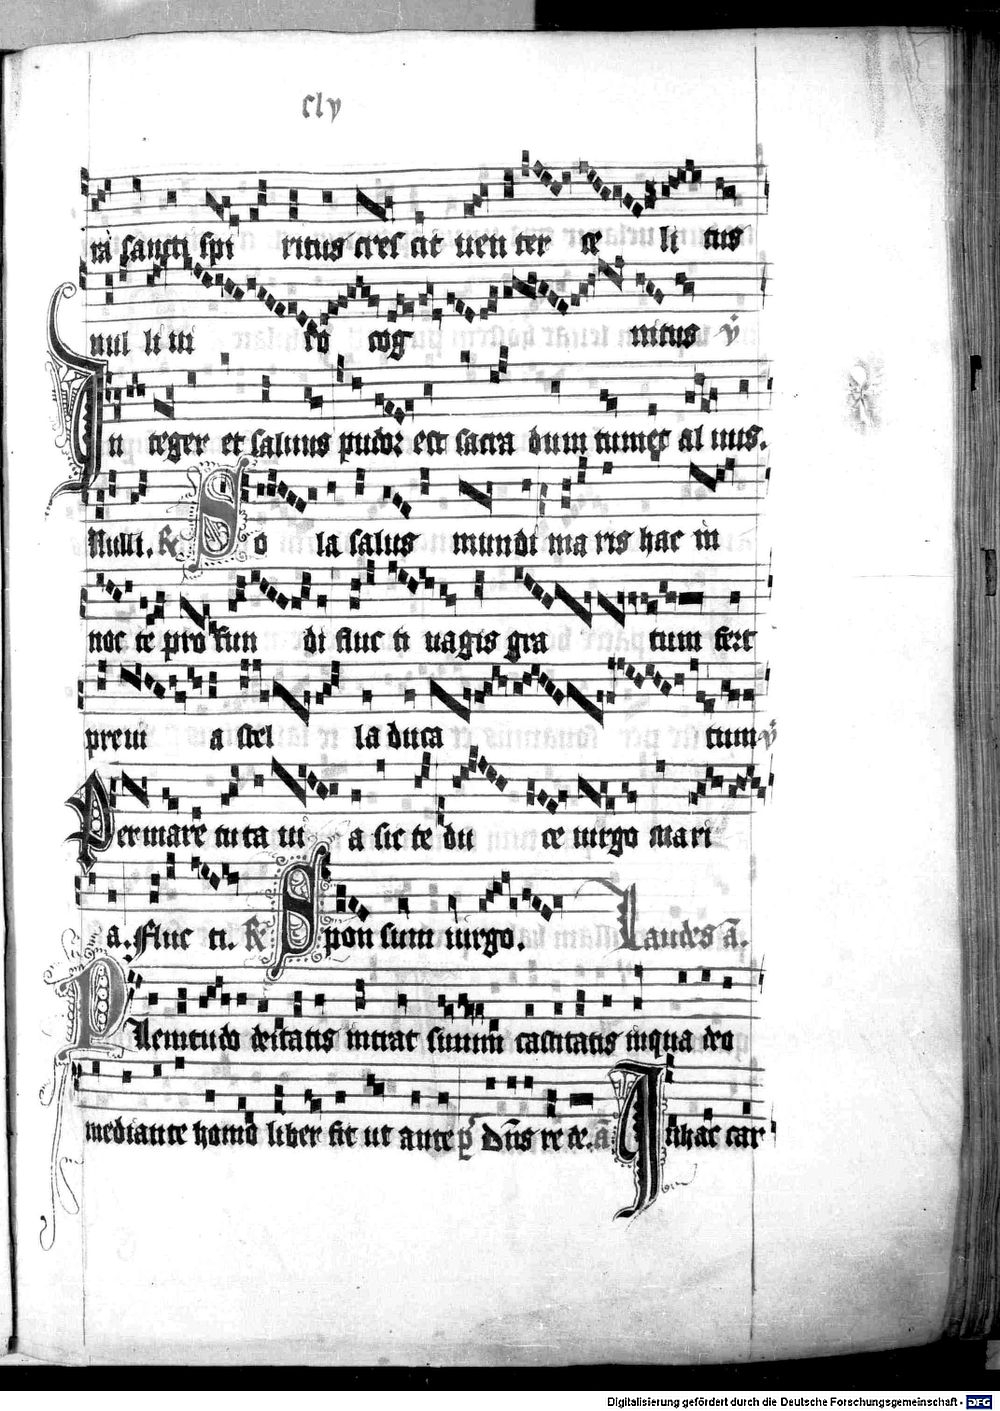 clv
rā sancti spi ritus cres cit uen ter ce li tus
nul li ui ro cog nitus ℣
In teger et saluus pudor est sacra dum tumet al uus.
Nulli. ℟ So la salus mundi ma ris hac in
noc te pro fun di fluc ti uagis gra tum fert
preui a stel la duca tum ℣
Per mare tuta ui a sic te du ce uirgo mari
a. Fluc ti. ℟ Spon sum uirgo. Laudes ā.
Plenitudo deitatis intrat sinum castitatis in qua deo
mediante homo liber fit ut ante p̄ Dn̄s re te. ā In hac car
Digitalisierung gefördert durch die Deutsche Forschungsgemeinschaft - DFG